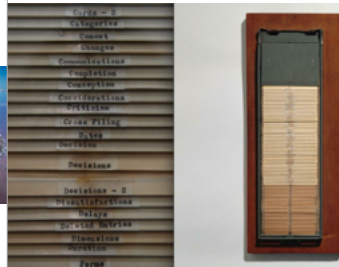 Cards - 2
Categories
Cement
Changes
Communications
Completion
Conception
Considerations
Criticism
Cross Filing
Dates
Decision
Decisions
Decisions - 2
Dissatisfactions
Delays
Deleted Entries
Dimensions
Duration
Forms